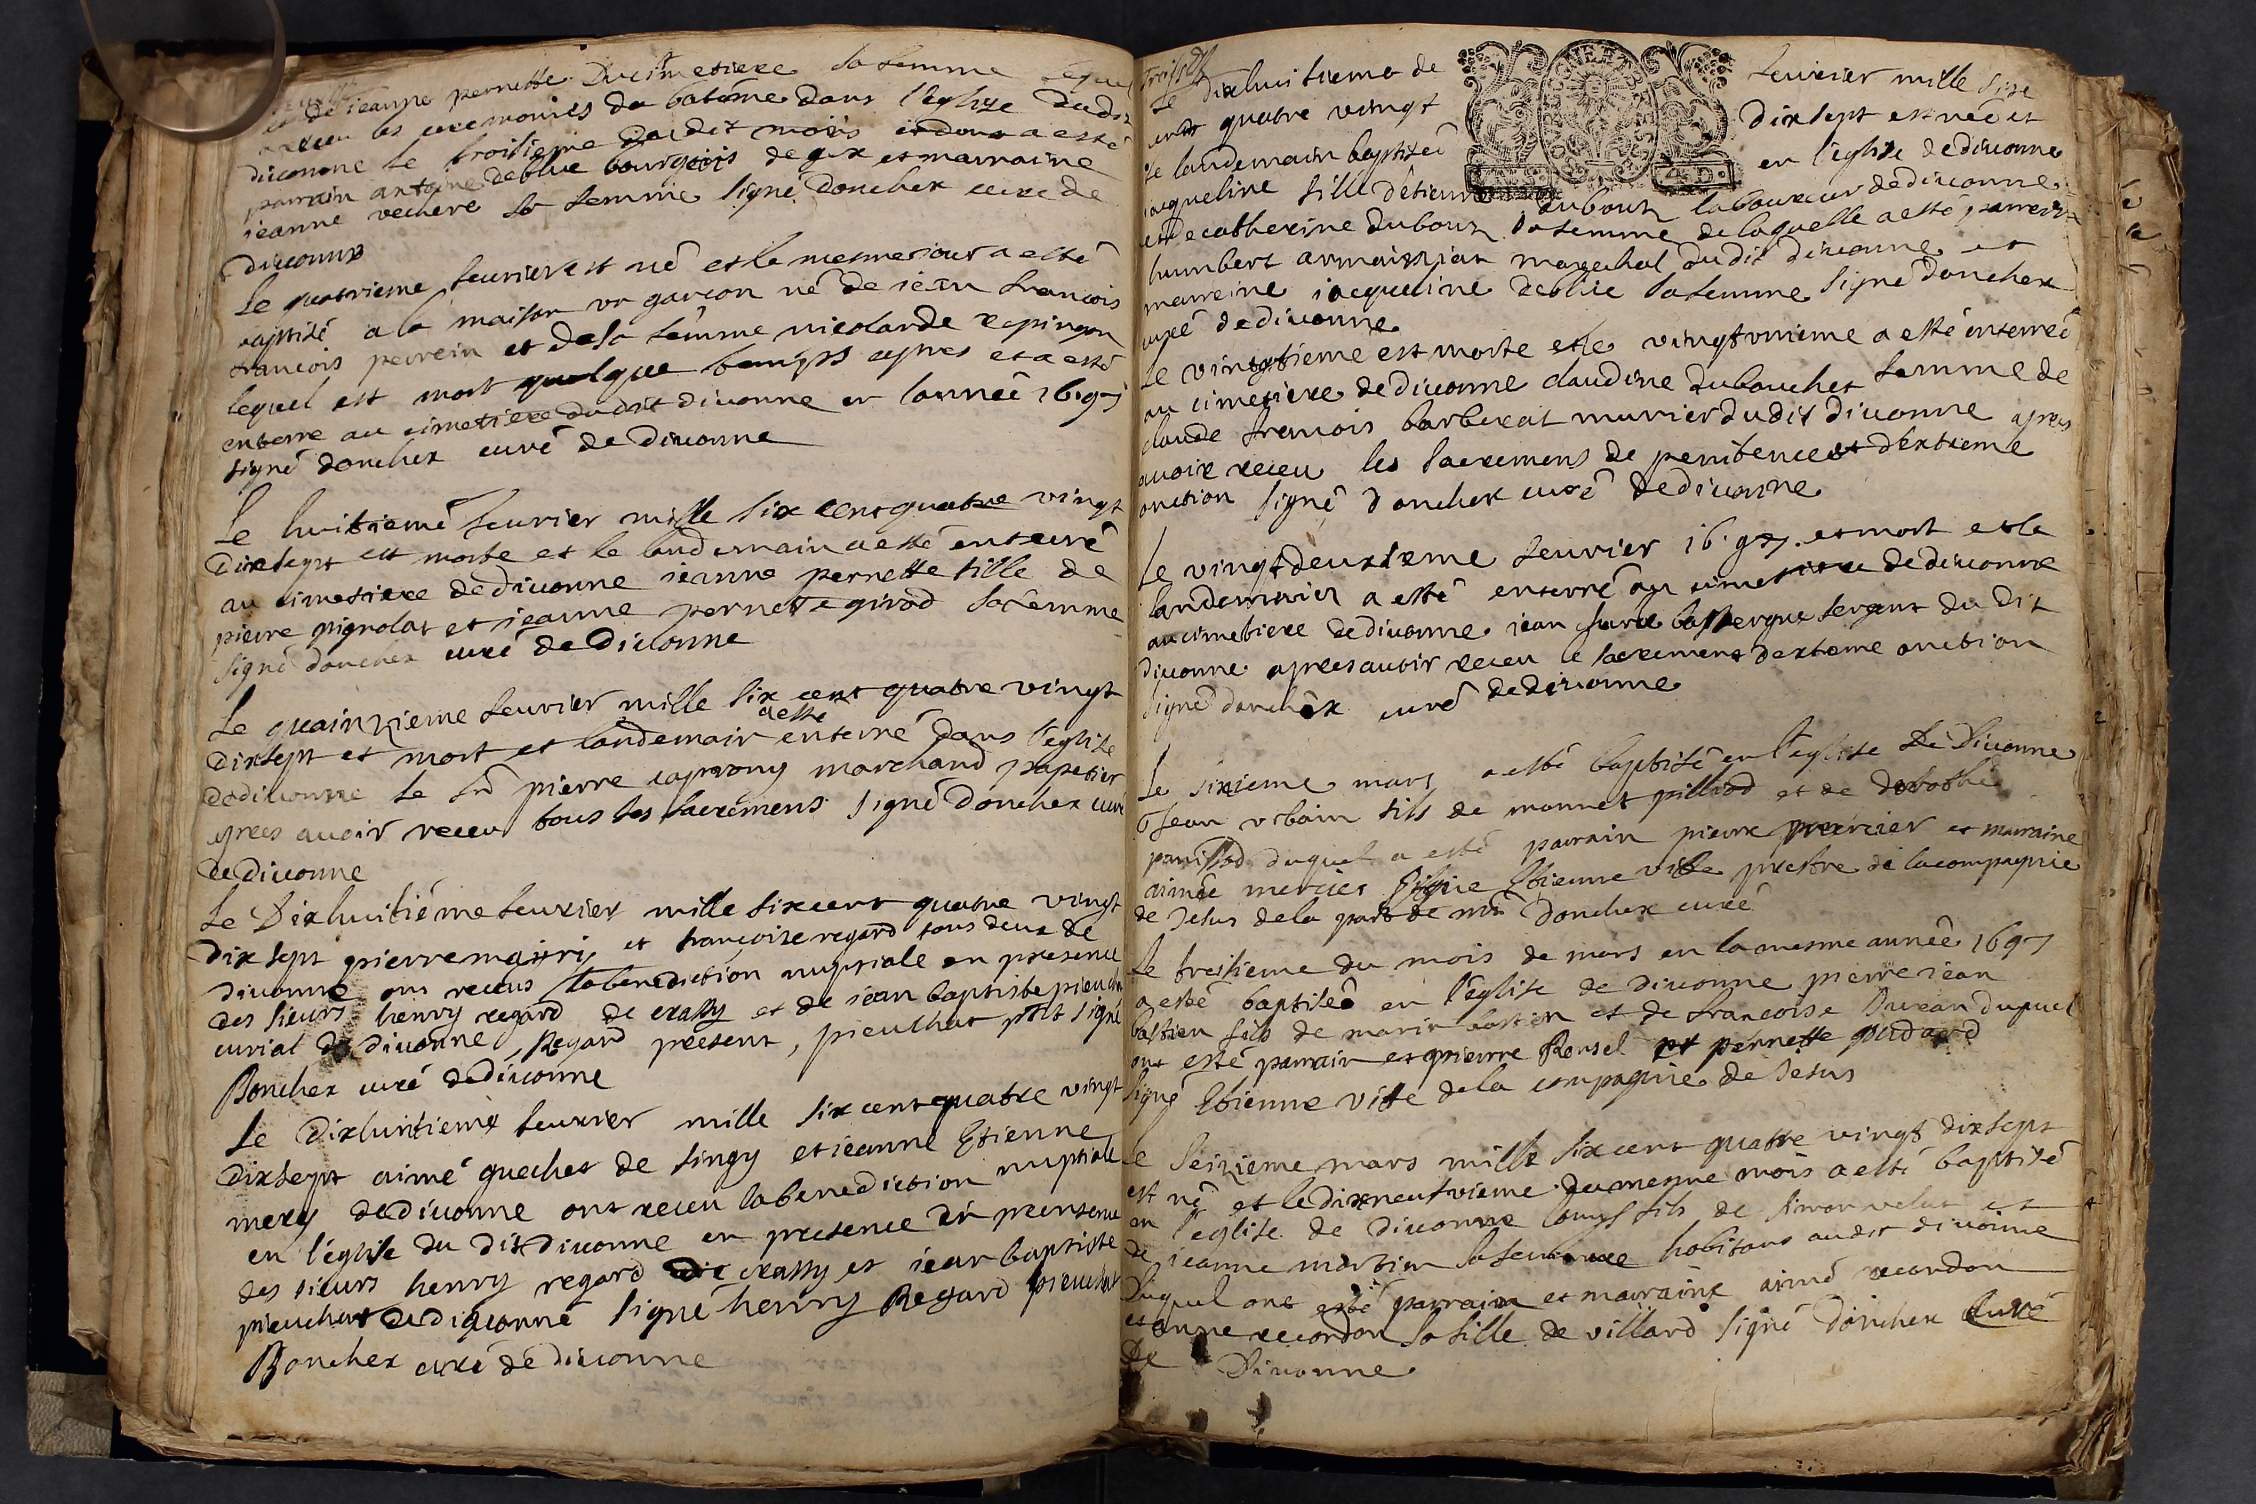 de jeanne pernette Ducimetiere sa femme
receu les ceremonies du batême dans l'eglize dudit
divonne le troisieme du dit mois et dont a esté
parrain antoine deblue bourgeois de gex et marraine
jeanne vechere sa femme signé doncher curé de
divonne
Le quatrieme feurier est né et le mesme jour a esté
baptizé a la maison un garçon né de jean francois
francois perrein et de sa femme nicolarde
lequel est mort quelque temps apres et a esté
enterre au cimetiere dudit divonne en lannée 1697
signé doncher curé de Divonne
Le huitieme feurier mille six cent quatre vingt
dixsept est morte et le landemain a esté enterré
au cimetiere de divonne jeanne pernette fille de
pierre pignolat et jeanne pernette girod sa femme
signé doncher curé de Divonne
Le quainzieme feurier mille six cent quatre vingt
dixsept et mort et landemain a esté enterré dans l'eglise
de divonne le sr pierre caprony marchand papetier
apres avoir receu tous les sacremens signé Doncher curé
de Divonne
Le Dixhuitiéme feurier mille sixcent quatre vingt
dix sept pierre et françoise regard tous deux de
divonne ont receus la benediction nuptiale en presence
des sieurs henry regard de crassy et de jean baptiste pieuchat
curial de divonne, Regard present, pieuchat signé
Boncher curé de divonne
Le Dixhuitieme feurier mille six cent quatre vingt
dixsept aimé quechet de singy et jeanne Etienne
mery de divonne ont receu la benediction nuptiale
en l'église du dit Divonne en presence
des sieurs henry regard de crassy et jean baptiste
pieuchat de divonne signé henry Regard pieuchat
Boncher curé de divonne
Le Dixhuitieme de feurier mille six
cent quatre vingt dixsept est née et
le landemain baptizeé en l'église de divonne
jacqueline fille d'etienne dubout laboureur de divonne
et de catherine dubout sa femme de laquelle a esté parrein
humbert armaissiat marechal dudit divonne et
marreine jacqueline deblue sa femme signé doncher
curé de divonne
Le vingtieme est morte et le vingtunieme a esté enterreé
au cimetiere de divonne claudine dubouchet femme de
claude francois barberat munier dudit divonne apres
avoir receu les sacremens de penitence et d'extreme
onction signé doncher curé de divonne
Le vingtdeuxieme feurier 1697. et mort et le
landemain a esté enterré au cimetiere de divonne
au cimetiere de divonne jean sergent du dit
divonne apres avoir receu le sacrement dextreme onction
signé doncher curé de divonne
Le sixieme mars a esté baptisé en l'eglise de Divonne
Jean urbain fils de monnet pillivod et de dorothée
panissod duquel a esté parrain pierre mercier et marraine
aimée mercier Etienne vitte prestre de la compagnie
de Jesus de la part de mr Doncher curé
Le treizieme du mois de mars en la mesme année 1697
a esté baptiseé en l'église de divonne pierre jean
bastien fils de marin bastien et de francoise Dupuel
ont esté parrain et pierre Ronsel et pernette
signé Etienne vitte de la compagnie de Jesus
Le Seizieme mars mille six cent quatre vingt dixsept
est né et le dixneufvieme du mesme mois a esté baptisé
en l'eglise de divonne louys fils de simon velut et
de jeanne martin sa femme habitans audit divonne
Duquel ont esté parrain et marraine aimé recordon
et anne recordon sa fille de villard signé doncher Curé
De Divonne